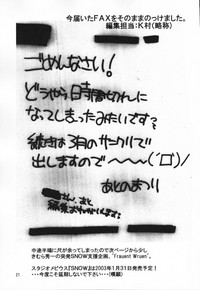 今届いたFAXをそのままのっけました。
編集担当：K村(略称)
ごめんなさい！
どうやら時間切れに
なってしまったみたいです？
続きは3月のサンクリで
出しますので〜〜〜(´ロ`)/
あとのまつり
中途半端に尺が余ってしまったので次ページから少し
きむら秀一の突発SNOW支援企画、"Frauent Wruen"、
スタジオメビウス『SNOW』は2003年1月31日発売予定！
･･･今度こそ延期しないで下さい･･･(懇願)
21